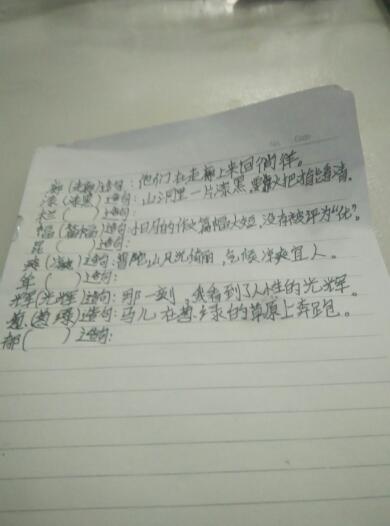 廊(走廊)造句:他们在走廊上来回徜徉。
漆(漆黑)造句:山洞里一片漆黑,需火把才能看清。
兰( )造句:
幅(篇幅)造句:小月的作文篇幅太短,没有被评为“优”。
昆( )造句:
爽(凉爽)造句:普陀山风光绮丽,气候凉爽宜人。
年( )造句:
辉(光辉)造句:那一刻,我看到了人性的光辉。
葱(葱绿)造句:马儿在葱绿的草原上奔跑。
郁( )造句: